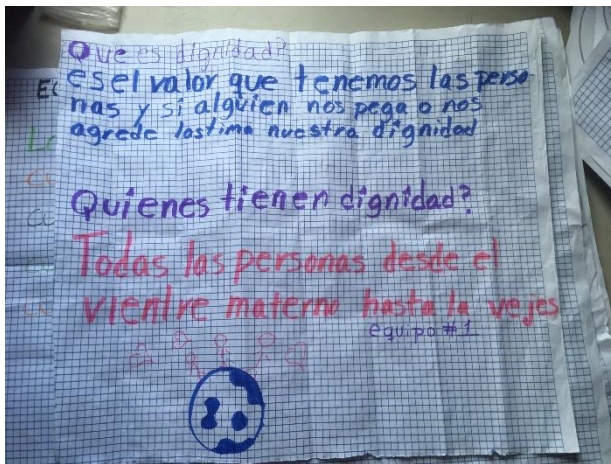 Que es dignidad?
es el valor que tenemos las perso-
nas y si alguien nos pega o nos
agrede lastima nuestra dignidad
Quienes tienen dignidad?
Todas las personas desde el
vientre materno hasta la vejes
equipo #1